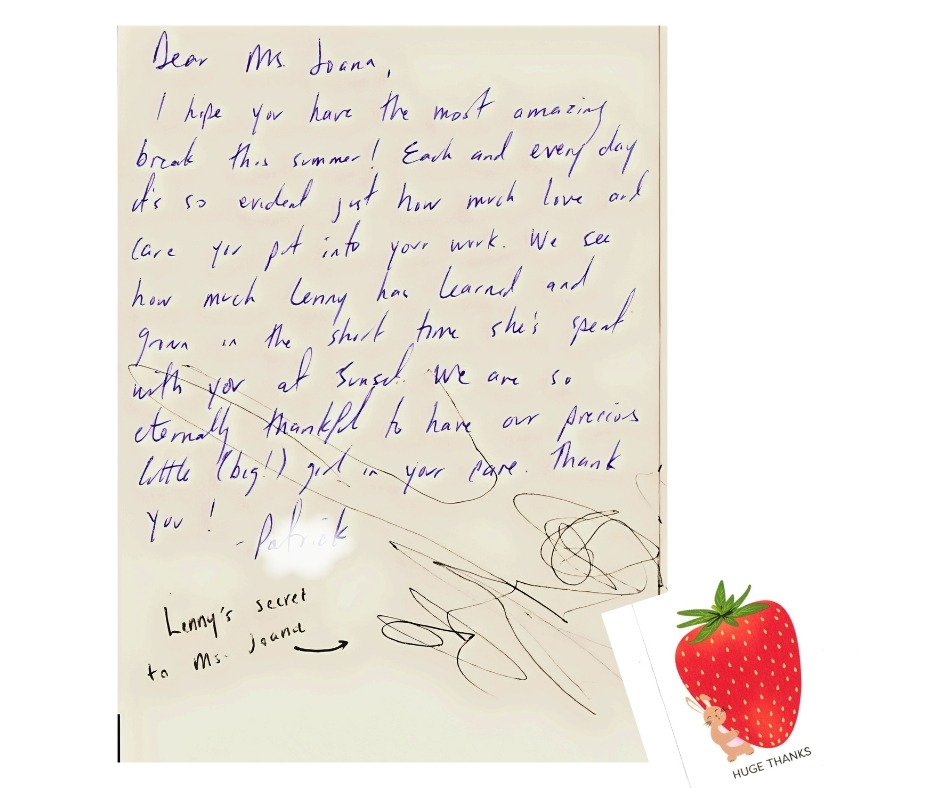 Dear Ms. Joana,
I hope you have the most amazing
break this summer! Each and every day
it's so evident just how much love and
care you put into your work. We see
how much Lenny has learned and
grown in the short time she's spent
with you at Sunset. We are so
eternally thankful to have our precious
little (big!) girl in your care. Thank
you!
- Patrick
Lenny's secret
to Ms. Joana
HUGE THANKS